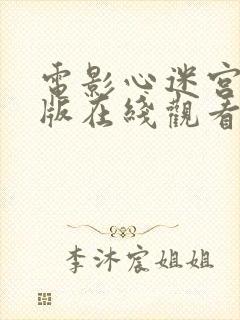 電影心迷宮
版在綫觀看
李沐宸姐姐